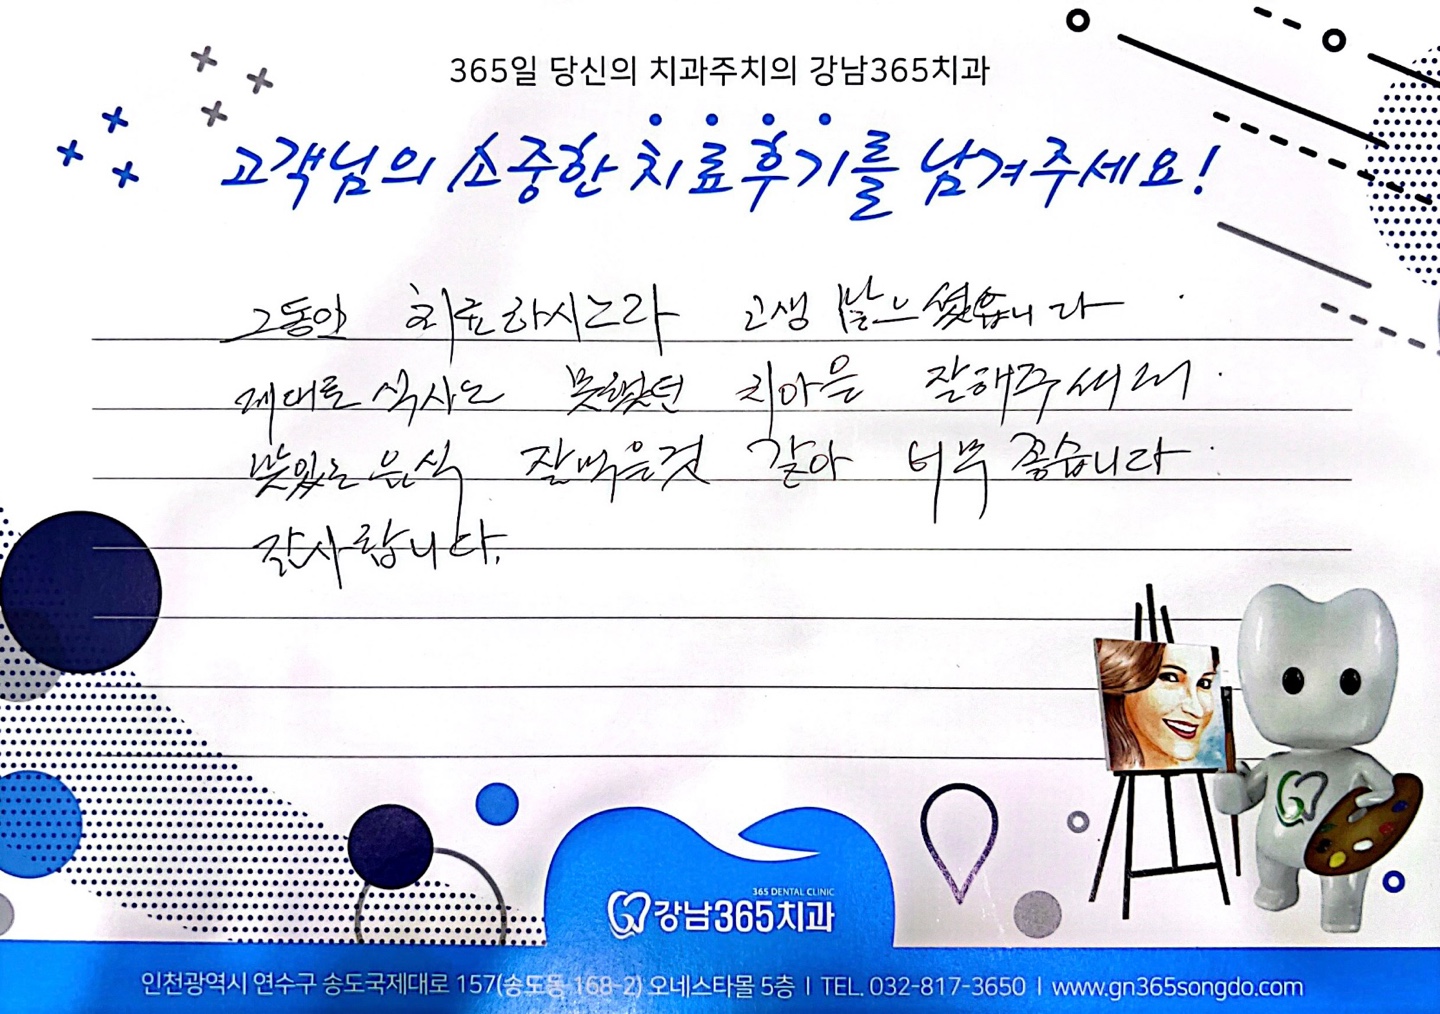 365일 당신의 치과주치의 강남365치과
고객님의 소중한 치료후기를 남겨주세요!
그동안 치료하시느라 고생 많으셨습니다.
제대로 식사는 못했던 치아을 잘해주셔서.
맛있는 음식 잘먹을것 같아 너무 좋습니다.
감사합니다.
365 DENTAL CLINIC
강남365치과
인천광역시 연수구 송도국제대로 157(송도동 168-2) 오네스타몰 5층 | TEL. 032-817-3650 | www.gn365songdo.com